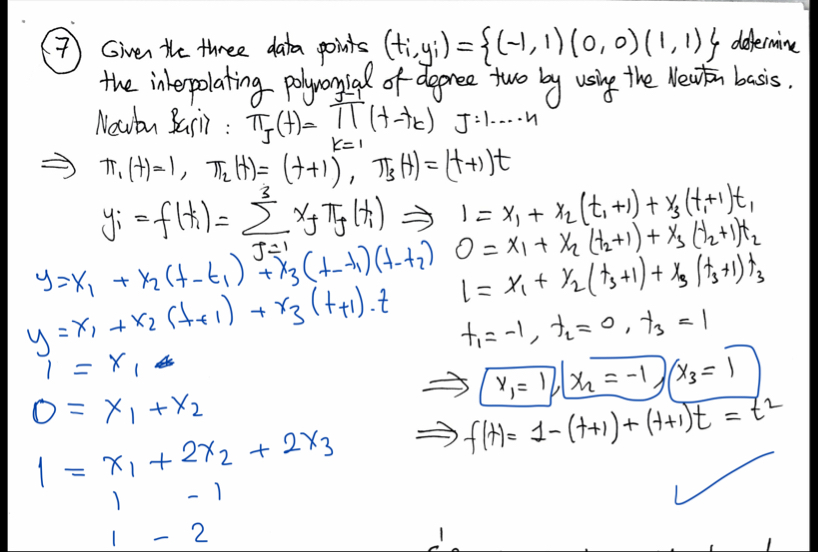 ⑦ Given the three data points (ti,yi) = {(-1, 1)(0, 0)(1, 1)} determine
the interpolating polynomial of degree two by using the Newton basis.
Newton Basis : πJ(t) = ∏_{k=1}^{J-1} (t-tk) J=1....n
⇒ π1(t)=1, π2(t)= (t+1), π3(t)=(t+1)t
yi = f(ti) = ∑_{J=1}^{3} xJ πJ(ti) ⇒ 1 = x1 + x2(t1+1) + x3(t1+1)t1
0 = x1 + x2(t2+1) + x3(t2+1)t2
1 = x1 + x2(t3+1) + x3(t3+1)t3
t1=-1, t2=0, t3=1
⇒ x1=1, x2=-1, x3=1
⇒ f(t)= 1-(t+1)+(t+1)t = t²
y=x1 + x2(t-t1) + x3(t-t1)(t-t2)
y=x1 + x2(t+1) + x3(t+1).t
1 = x1
0 = x1 + x2
1 = x1 + 2x2 + 2x3
1 -1
1 - 2